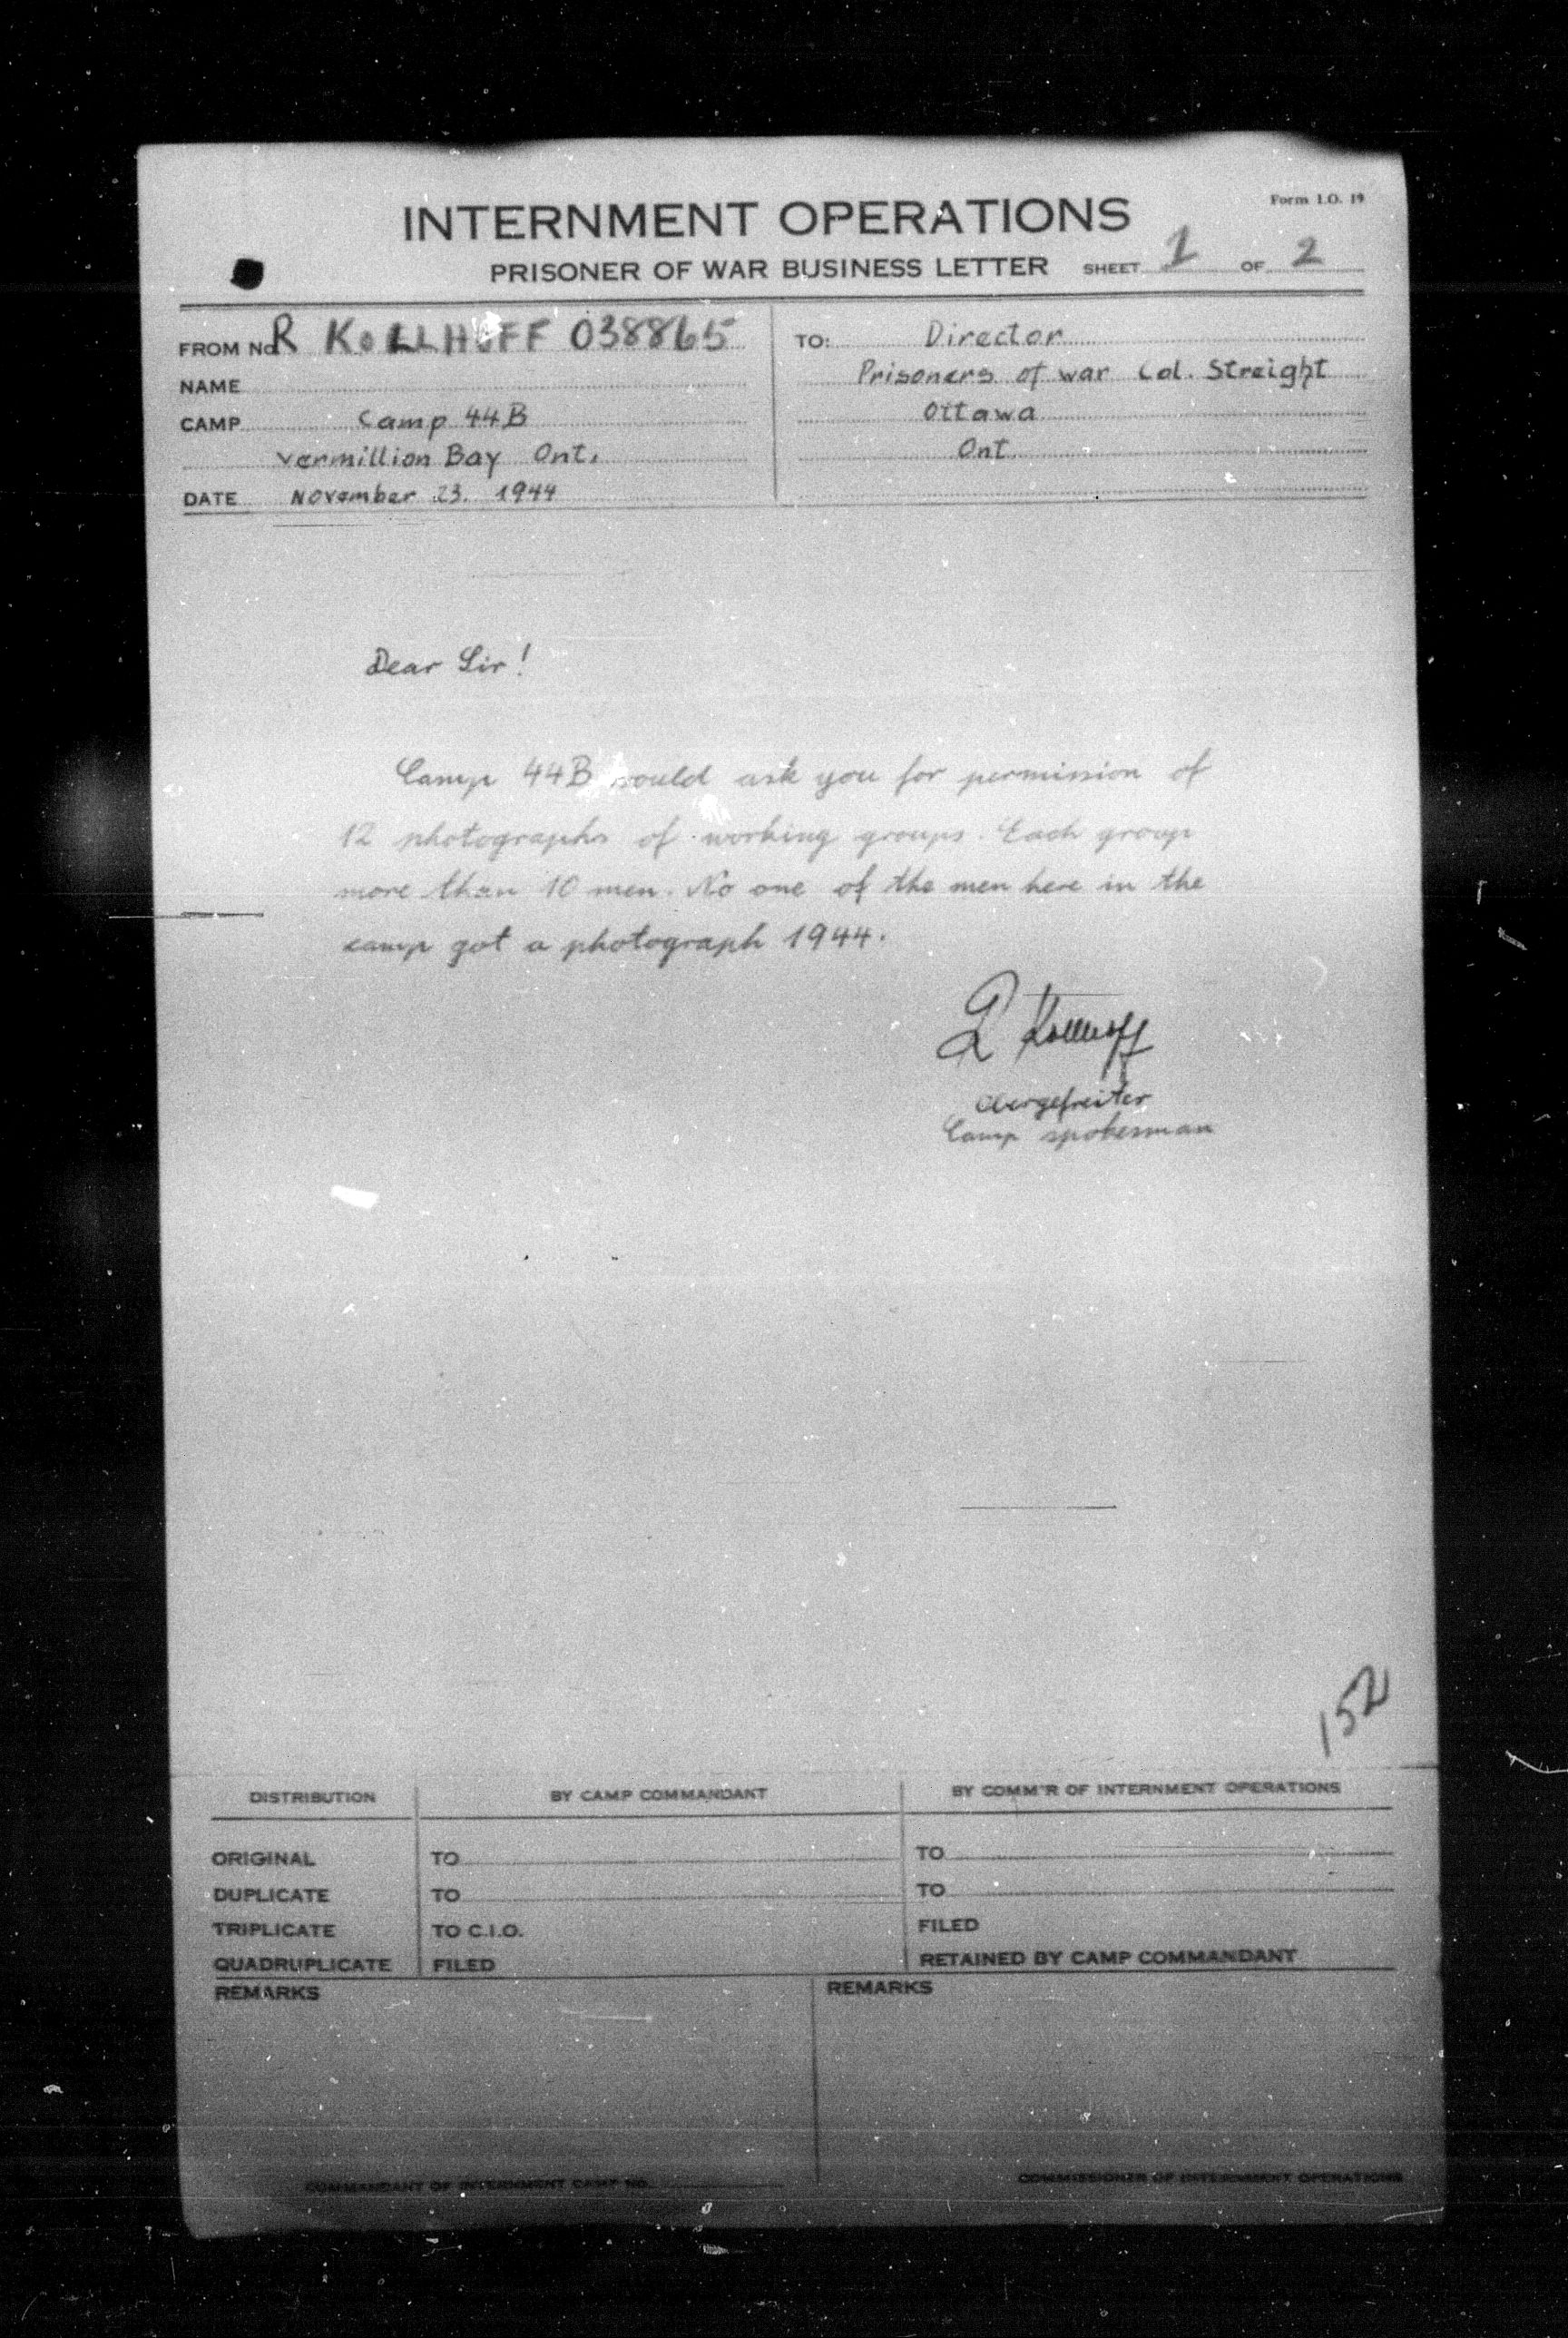 Form I.O. 19
INTERNMENT OPERATIONS
PRISONER OF WAR BUSINESS LETTER SHEET 1 OF 2
FROM No R KOLLHOFF 038865
NAME
CAMP Camp 44B
Vermillion Bay Ont.
DATE November 23. 1944
TO: Director
Prisoners of war Col. Streight
Ottawa
Ont
Dear Sir!
Camp 44B would ask you for permission of
12 photographs of working groups. Each group
more than 10 men. No one of the men here in the
camp got a photograph 1944.
R Kollhoff
Obergefreiter
Camp spokesman
152
DISTRIBUTION BY CAMP COMMANDANT BY COMM'R OF INTERNMENT OPERATIONS
ORIGINAL TO TO
DUPLICATE TO TO
TRIPLICATE TO C.I.O. FILED
QUADRUPLICATE FILED RETAINED BY CAMP COMMANDANT
REMARKS REMARKS
COMMANDANT OF INTERNMENT CAMP NO. COMMISSIONER OF INTERNMENT OPERATIONS